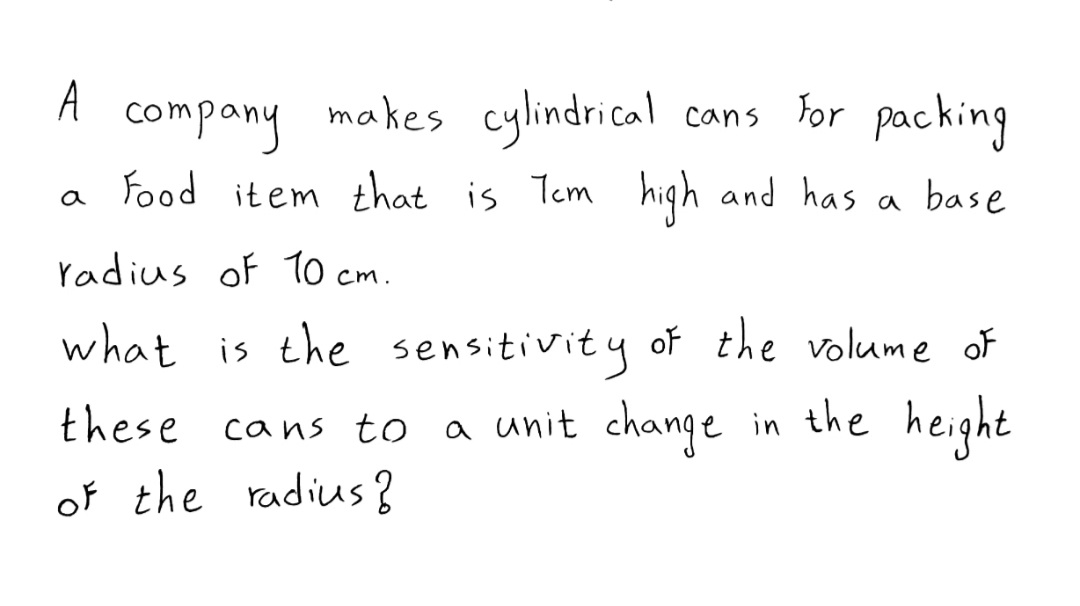 A company makes cylindrical cans for packing
a food item that is 7cm high and has a base
radius of 10 cm.
what is the sensitivity of the volume of
these cans to a unit change in the height
of the radius?